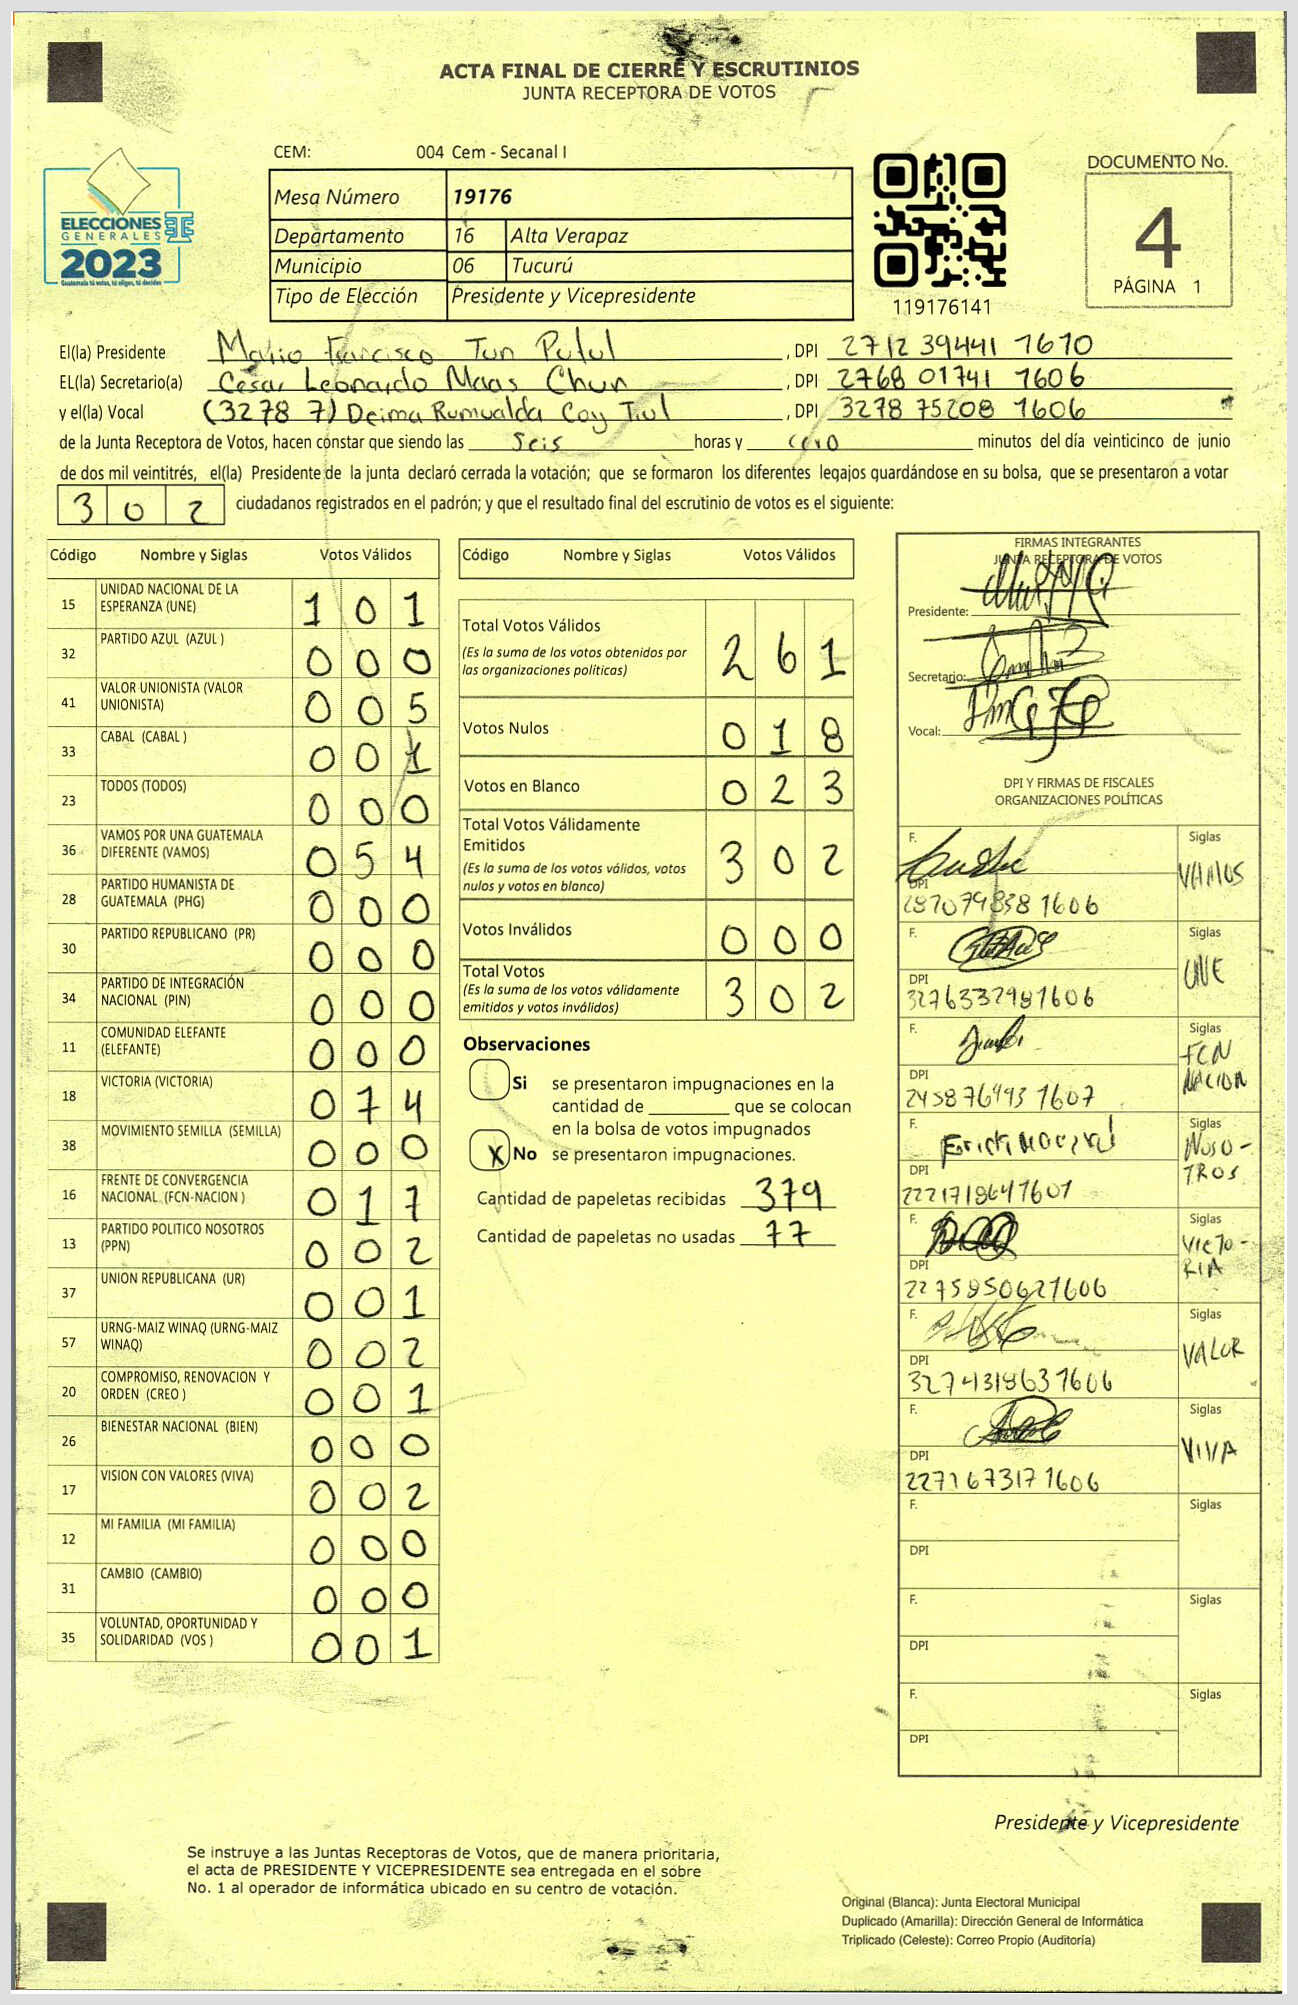 ACTA FINAL DE CIERRE Y ESCRUTINIOS
JUNTA RECEPTORA DE VOTOS
CEM: 004 Cem - Secanal I
DOCUMENTO No.
4
PÁGINA 1
ELECCIONES
GENERALES
2023
Guatemala tú votas, tú eliges, tú decides
Mesa Número 19176
Departamento 16 Alta Verapaz
Municipio 06 Tucurú
Tipo de Elección Presidente y Vicepresidente
119176141
El(la) Presidente Mario Francisco Tun Putul, DPI 2712 39441 1610
EL(la) Secretario(a) César Leonardo Maas Chun, DPI 2768 01741 1606
y el(la) Vocal (3278 7) Deima Rumualda Coy Tiul, DPI 3278 75208 1606
de la Junta Receptora de Votos, hacen constar que siendo las Seis horas y cero minutos del día veinticinco de junio
de dos mil veintitrés, el(la) Presidente de la junta declaró cerrada la votación; que se formaron los diferentes legajos guardándose en su bolsa, que se presentaron a votar
302 ciudadanos registrados en el padrón; y que el resultado final del escrutinio de votos es el siguiente:
Código Nombre y Siglas Votos Válidos
15 UNIDAD NACIONAL DE LA ESPERANZA (UNE) 1 0 1
32 PARTIDO AZUL (AZUL ) 0 0 0
41 VALOR UNIONISTA (VALOR UNIONISTA) 0 0 5
33 CABAL (CABAL ) 0 0 1
23 TODOS (TODOS) 0 0 0
36 VAMOS POR UNA GUATEMALA DIFERENTE (VAMOS) 0 5 4
28 PARTIDO HUMANISTA DE GUATEMALA (PHG) 0 0 0
30 PARTIDO REPUBLICANO (PR) 0 0 0
34 PARTIDO DE INTEGRACIÓN NACIONAL (PIN) 0 0 0
11 COMUNIDAD ELEFANTE (ELEFANTE) 0 0 0
18 VICTORIA (VICTORIA) 0 7 4
38 MOVIMIENTO SEMILLA (SEMILLA) 0 0 0
16 FRENTE DE CONVERGENCIA NACIONAL (FCN-NACION ) 0 1 7
13 PARTIDO POLITICO NOSOTROS (PPN) 0 0 2
37 UNION REPUBLICANA (UR) 0 0 1
57 URNG-MAIZ WINAQ (URNG-MAIZ WINAQ) 0 0 2
20 COMPROMISO, RENOVACION Y ORDEN (CREO ) 0 0 1
26 BIENESTAR NACIONAL (BIEN) 0 0 0
17 VISION CON VALORES (VIVA) 0 0 2
12 MI FAMILIA (MI FAMILIA) 0 0 0
31 CAMBIO (CAMBIO) 0 0 0
35 VOLUNTAD, OPORTUNIDAD Y SOLIDARIDAD (VOS ) 0 0 1
Código Nombre y Siglas Votos Válidos
Total Votos Válidos 2 6 1
(Es la suma de los votos obtenidos por
las organizaciones políticas)
Votos Nulos 0 1 8
Votos en Blanco 0 2 3
Total Votos Válidamente
Emitidos 3 0 2
(Es la suma de los votos válidos, votos
nulos y votos en blanco)
Votos Inválidos 0 0 0
Total Votos 3 0 2
(Es la suma de los votos válidamente
emitidos y votos inválidos)
Observaciones
Si se presentaron impugnaciones en la
cantidad de ________ que se colocan
en la bolsa de votos impugnados
X No se presentaron impugnaciones.
Cantidad de papeletas recibidas 379
Cantidad de papeletas no usadas 77
FIRMAS INTEGRANTES
JUNTA RECEPTORA DE VOTOS
Presidente:
Secretario:
Vocal:
DPI Y FIRMAS DE FISCALES
ORGANIZACIONES POLÍTICAS
F. Siglas
VAMOS
DPI
287079838 1606
F. Siglas
UNE
DPI
3276332981606
F. Siglas
FCN
NACION
DPI
2458764931607
F. Siglas
NOSO-
TROS
DPI
2221718641607
F. Siglas
VICTO-
RIA
DPI
2275850621606
F. Siglas
VALOR
DPI
3274318631606
F. Siglas
VIVA
DPI
2271673171606
F. Siglas
DPI
F. Siglas
DPI
F. Siglas
DPI
Presidente y Vicepresidente
Se instruye a las Juntas Receptoras de Votos, que de manera prioritaria,
el acta de PRESIDENTE Y VICEPRESIDENTE sea entregada en el sobre
No. 1 al operador de informática ubicado en su centro de votación.
Original (Blanca): Junta Electoral Municipal
Duplicado (Amarilla): Dirección General de Informática
Triplicado (Celeste): Correo Propio (Auditoría)